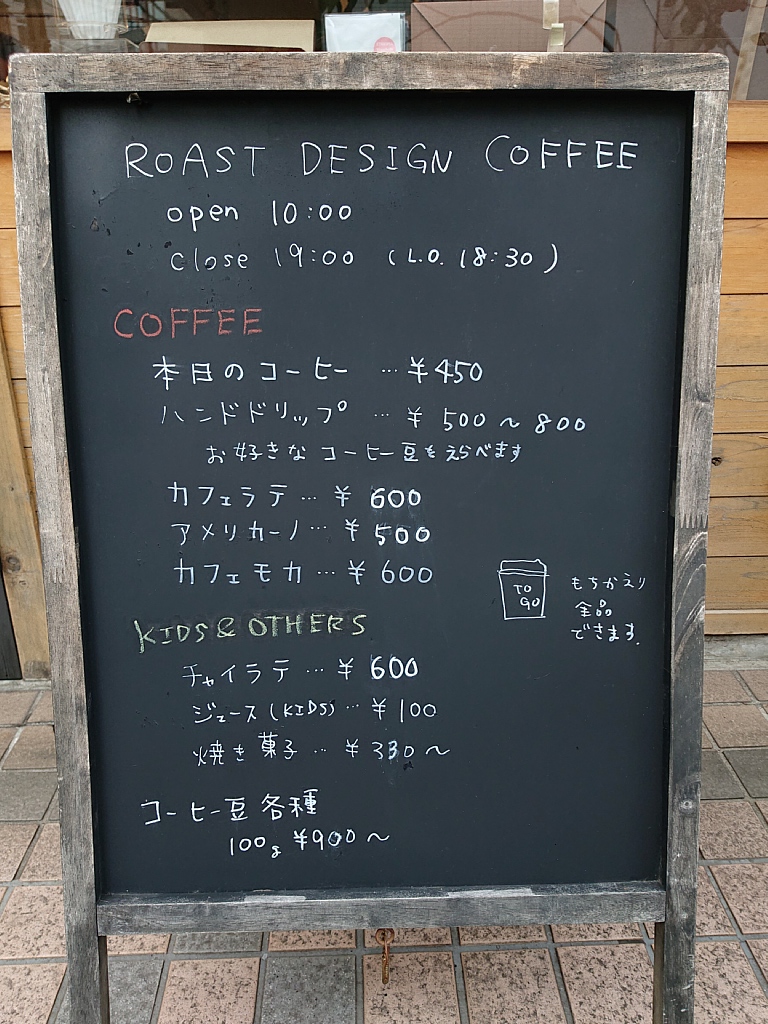 ROAST DESIGN COFFEE
open 10:00
close 19:00 (L.O. 18:30)
COFFEE
本日のコーヒー … ¥450
ハンドドリップ … ¥ 500 〜 800
お好きな コーヒー豆をえらべます
カフェラテ … ¥ 600
アメリカーノ … ¥ 500
カフェモカ … ¥ 600
TO GO
もちかえり
全品
できます.
KIDS & OTHERS
チャイラテ … ¥ 600
ジュース (KIDS) … ¥ 100
焼き菓子 … ¥ 330 〜
コーヒー豆 各種
100g ¥900 〜